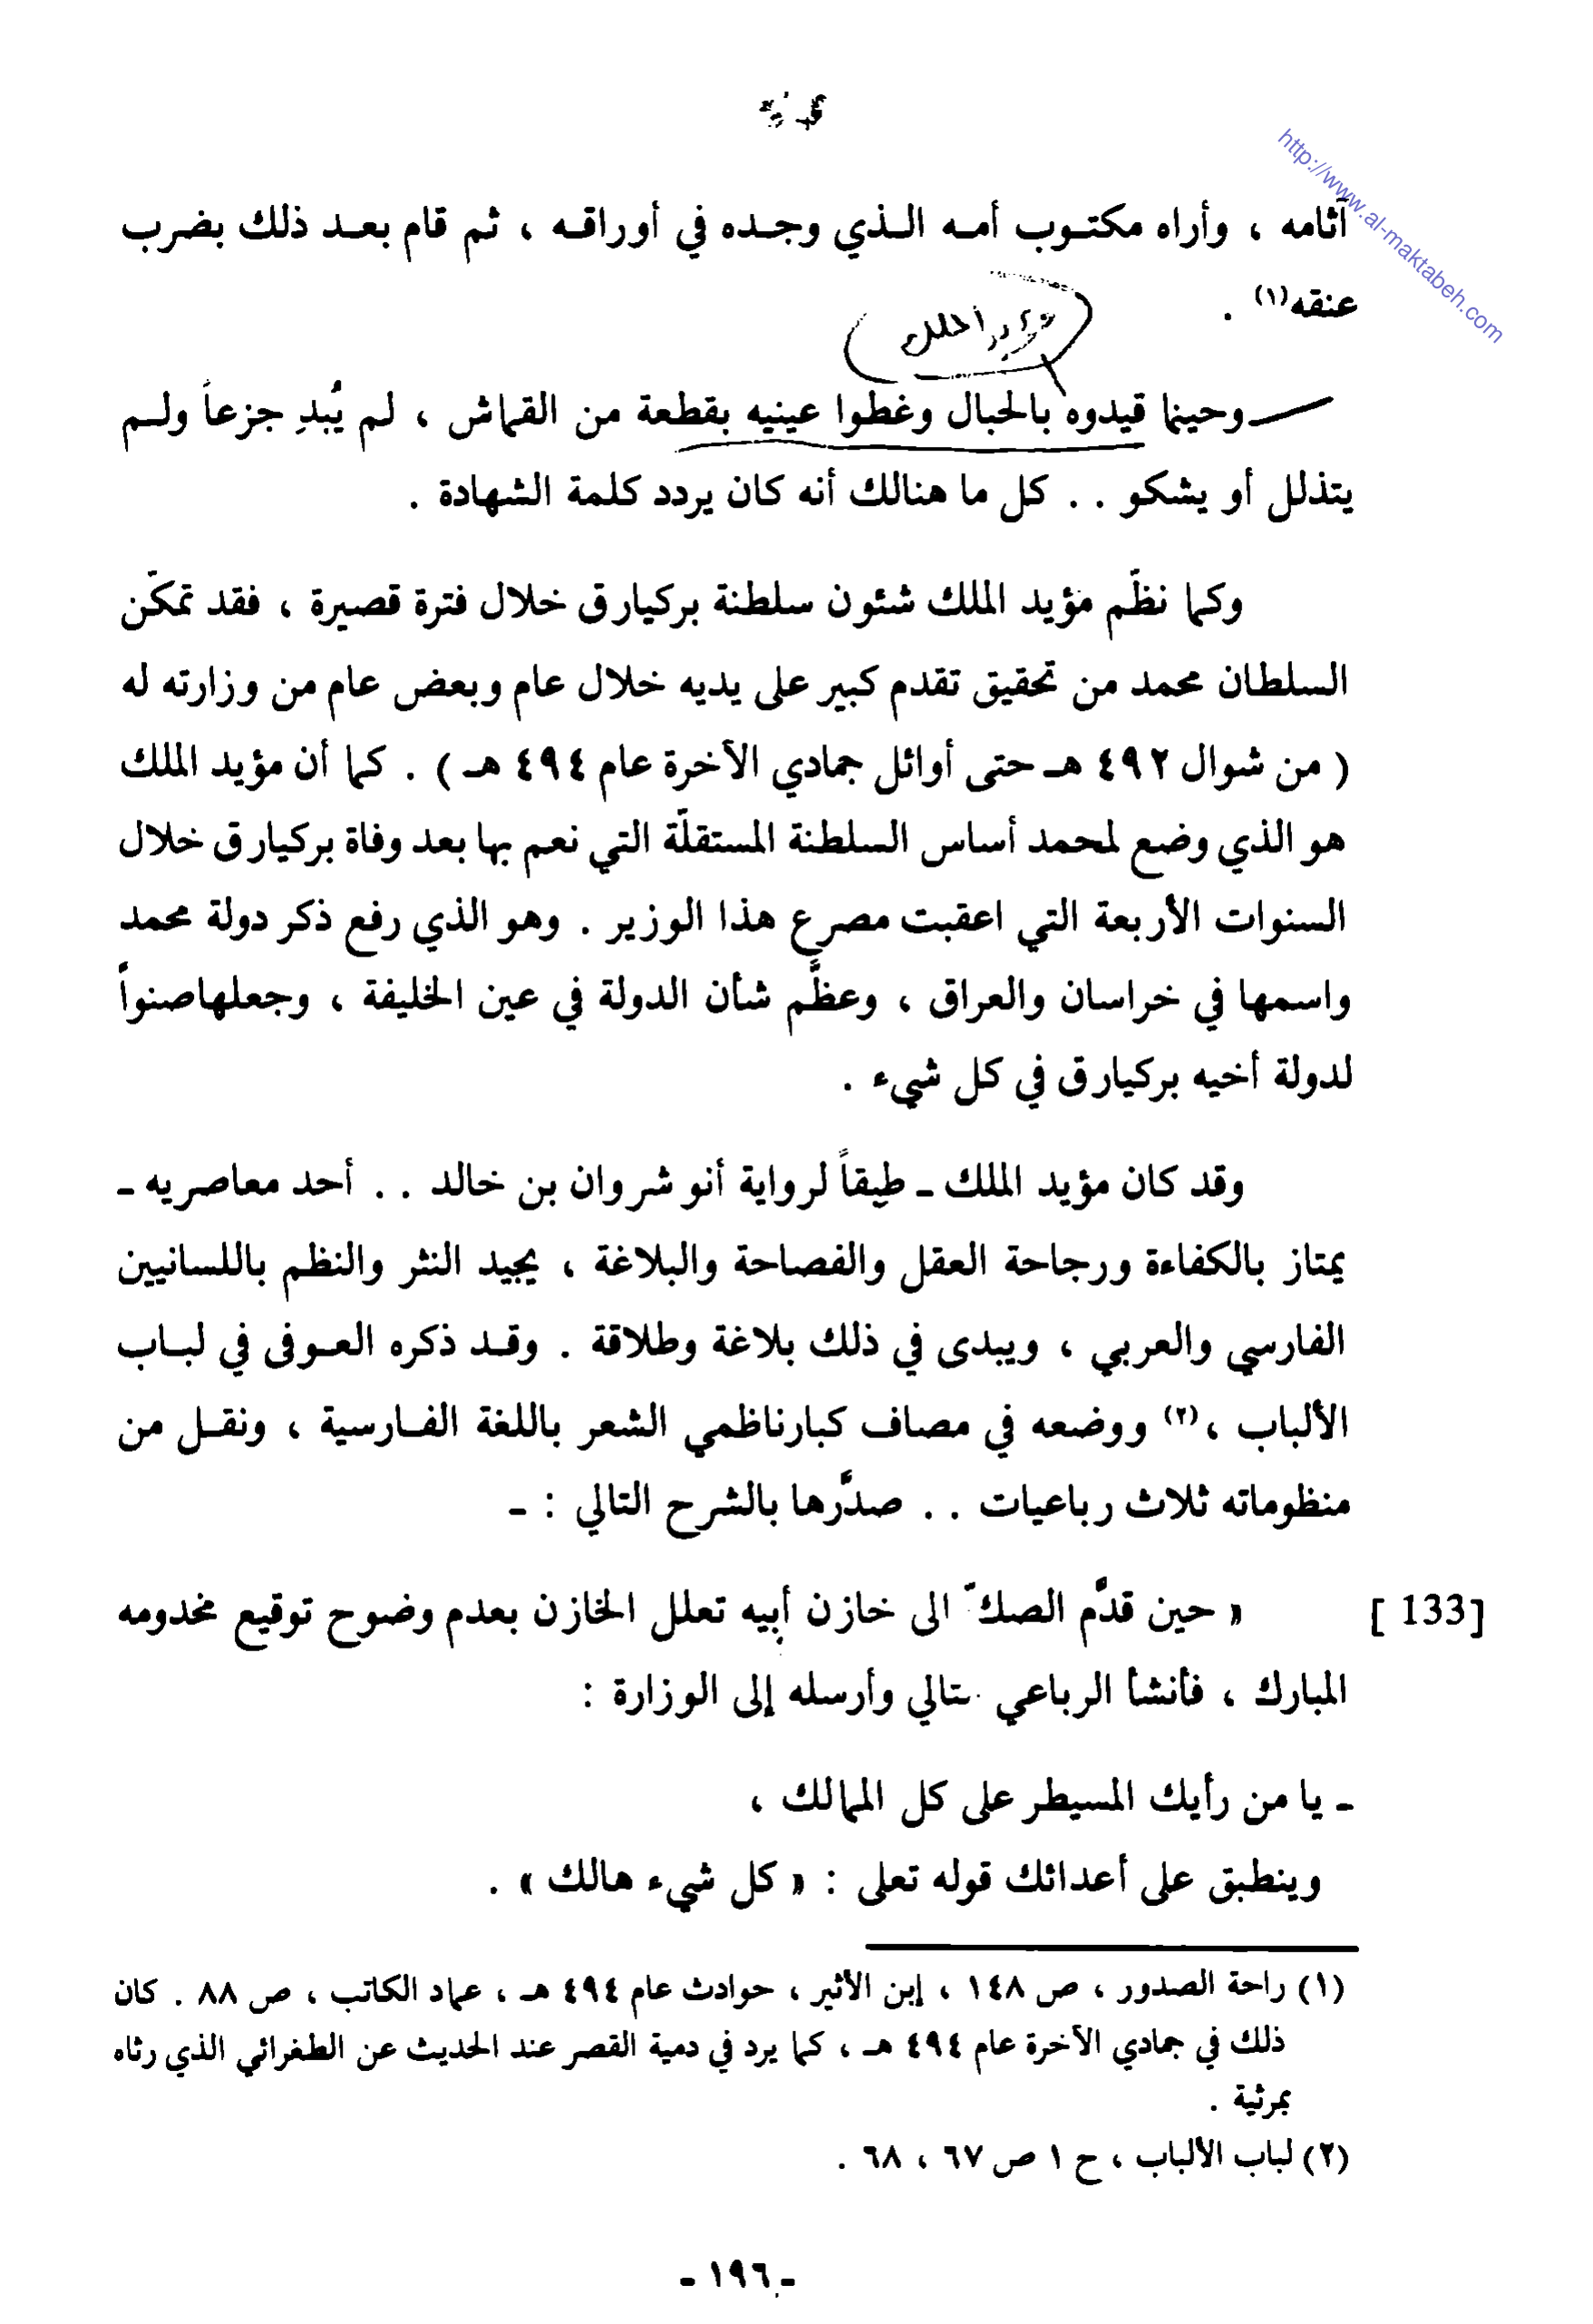 http://www.al-maktabeh.com
آثامه ، وأراه مكتوب أمه الذي وجده في أوراقه ، ثم قام بعد ذلك بضرب
عنقه(١) .
مؤيد الملك
وحينما قيدوه بالحبال وغطوا عينيه بقطعة من القماش ، لم يُبدِ جزعاً ولم
يتذلل أو يشكو . . كل ما هنالك أنه كان يردد كلمة الشهادة .
وكما نظّم مؤيد الملك شئون سلطنة بركيارق خلال فترة قصيرة ، فقد تمكّن
السلطان محمد من تحقيق تقدم كبير على يديه خلال عام وبعض عام من وزارته له
( من شوال ٤٩٢ هـ حتى أوائل جمادي الآخرة عام ٤٩٤ هـ ) . كما أن مؤيد الملك
هو الذي وضع لمحمد أساس السلطنة المستقلّة التي نعم بها بعد وفاة بركيارق خلال
السنوات الأربعة التي اعقبت مصرع هذا الوزير . وهو الذي رفع ذكر دولة محمد
واسمها في خراسان والعراق ، وعظَّم شأن الدولة في عين الخليفة ، وجعلهاصنواً
لدولة أخيه بركيارق في كل شيء .
وقد كان مؤيد الملك ـ طبقاً لرواية أنو شروان بن خالد . . أحد معاصريه ـ
يمتاز بالكفاءة ورجاحة العقل والفصاحة والبلاغة ، يجيد النثر والنظم باللسانيين
الفارسي والعربي ، ويبدى في ذلك بلاغة وطلاقة . وقد ذكره العوفى في لباب
الألباب ،(٢) ووضعه في مصاف كبارناظمي الشعر باللغة الفارسية ، ونقل من
منظوماته ثلاث رباعيات . . صدَّرها بالشرح التالي : ـ
[133 ] « حين قدَّم الصكّ الى خازن أبيه تعلل الخازن بعدم وضوح توقيع مخدومه
المبارك ، فأنشأ الرباعي ـتالي وأرسله إلى الوزارة :
ـ يا من رأيك المسيطر على كل الممالك ،
وينطبق على أعدائك قوله تعلى : « كل شيء هالك » .
(١) راحة الصدور ، ص ١٤٨ ، إبن الأثير ، حوادث عام ٤٩٤ هـ ، عماد الكاتب ، ص ٨٨ . كان
ذلك في جمادي الآخرة عام ٤٩٤ هـ ، كما يرد في دمية القصر عند الحديث عن الطغرائي الذي رثاه
بمرثية .
(٢) لباب الألباب ، ح ١ ص ٦٧ ، ٦٨ .
ـ ١٩٦ ـ